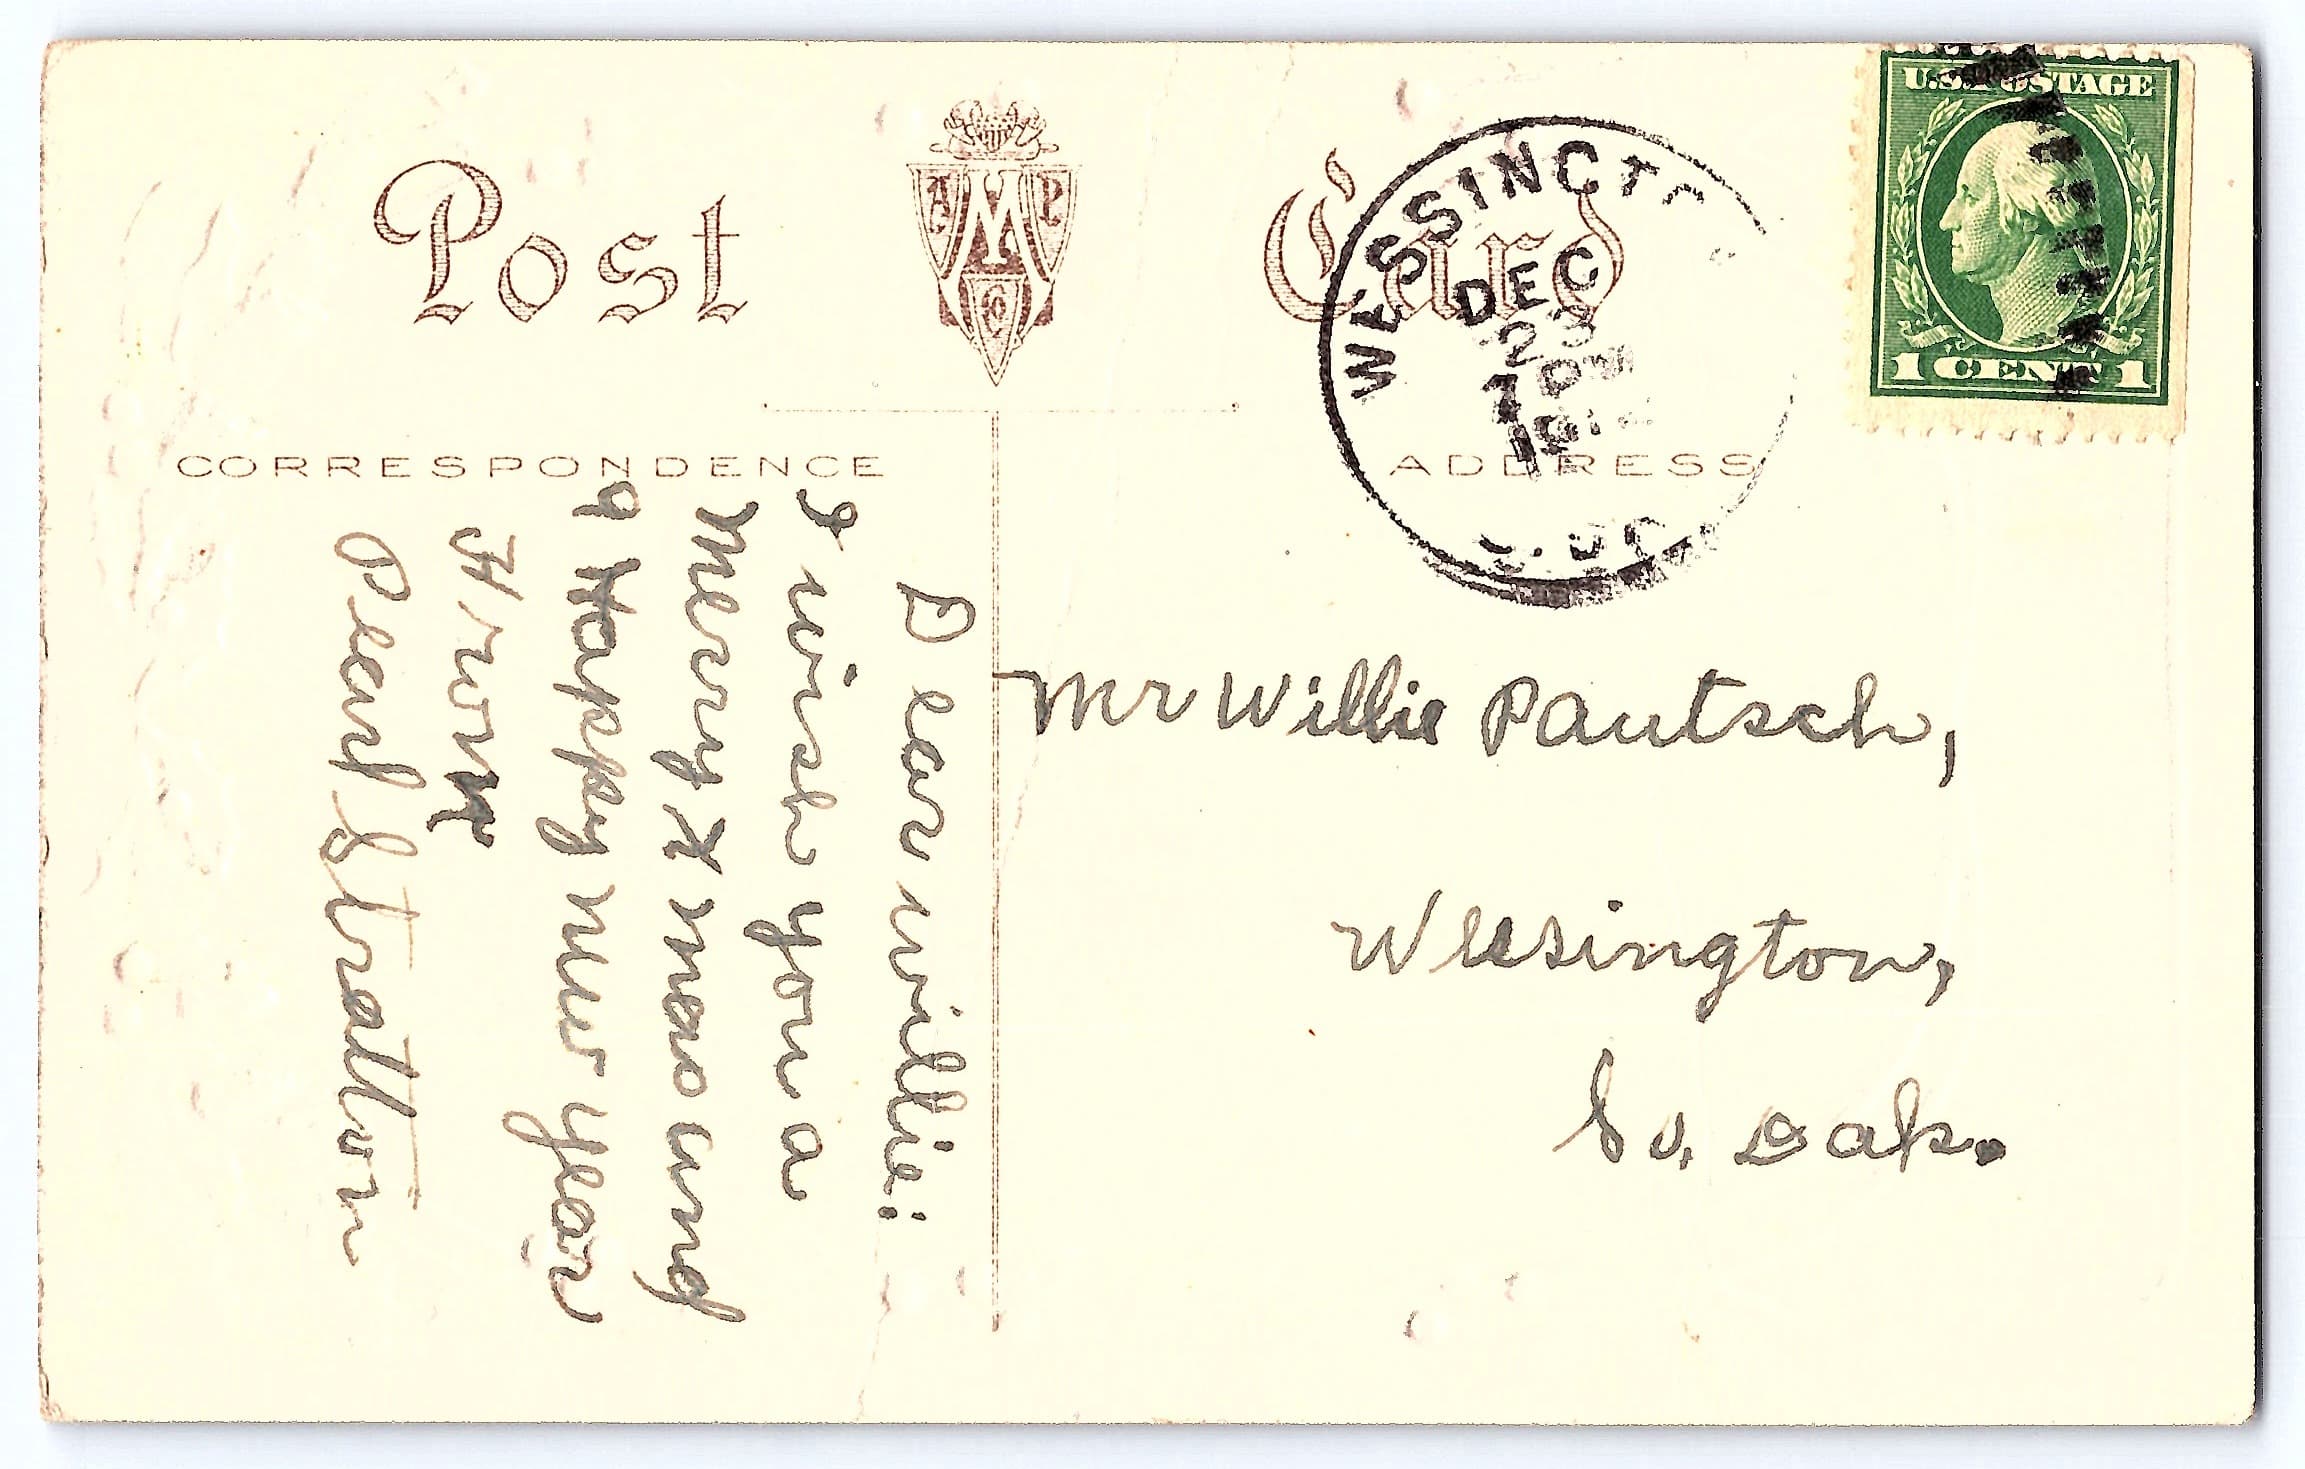 Post Card
CORRESPONDENCE
ADDRESS
U.S. POSTAGE
1 CENT 1
WESSINGTO
DEC
23
1 PM
Mr Willie Pautsch,
Wessington,
So. Dak.
Dear willie:
I wish you a
Merry X mas and
a Happy New year
From
Pearl Stratton